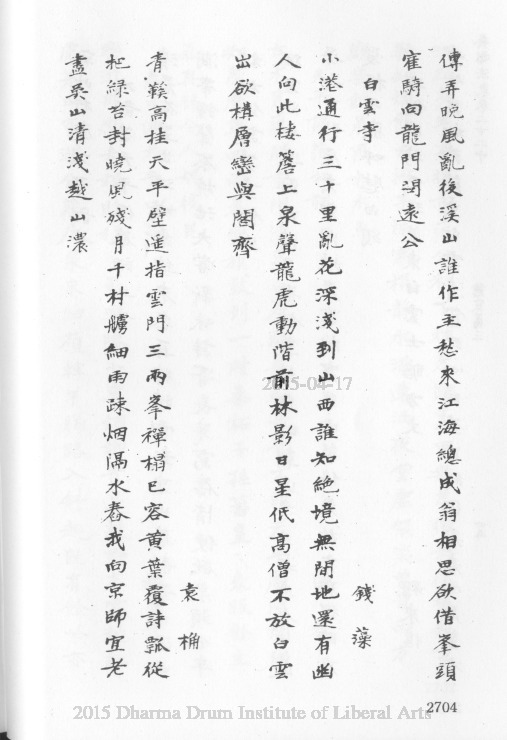 傳弄晚風亂後溪山誰作主愁來江海總成翁相思欲借峯頭
寉騎向龍門問遠公
白雲寺
錢藻
小港通行三十里亂花深淺到山西誰知絕境無閒地還有幽
人向此棲簷上泉聲龍虎動階前林影日星低高僧不放白雲
出欲構層巒與閣齊
袁桷
青鞵高挂天平壁遥指雲門三兩峯禪榻已容黄葉覆詩瓢從
杝緑苔封曉鳬殘月千村艣細雨踈烟隔水舂我向京師宜老
盡吳山清淺越山濃
2015-04-17
2704
2015 Dharma Drum Institute of Liberal Arts